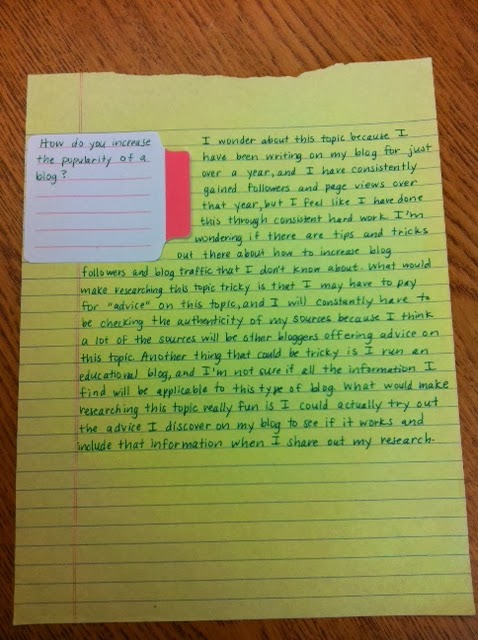 How do you increase
the popularity of a
blog?
I wonder about this topic because I
have been writing on my blog for just
over a year, and I have consistently
gained followers and page views over
that year, but I feel like I have done
this through consistent hard work. I'm
wondering if there are tips and tricks
out there about how to increase blog
followers and blog traffic that I don't know about. What would
make researching this topic tricky is that I may have to pay
for "advice" on this topic, and I will constantly have to
be checking the authenticity of my sources because I think
a lot of the sources will be other bloggers offering advice on
this topic. Another thing that could be tricky is I run an
educational blog, and I'm not sure if all the information I
find will be applicable to this type of blog. What would make
researching this topic really fun is I could actually try out
the advice I discover on my blog to see if it works and
include that information when I share out my research.